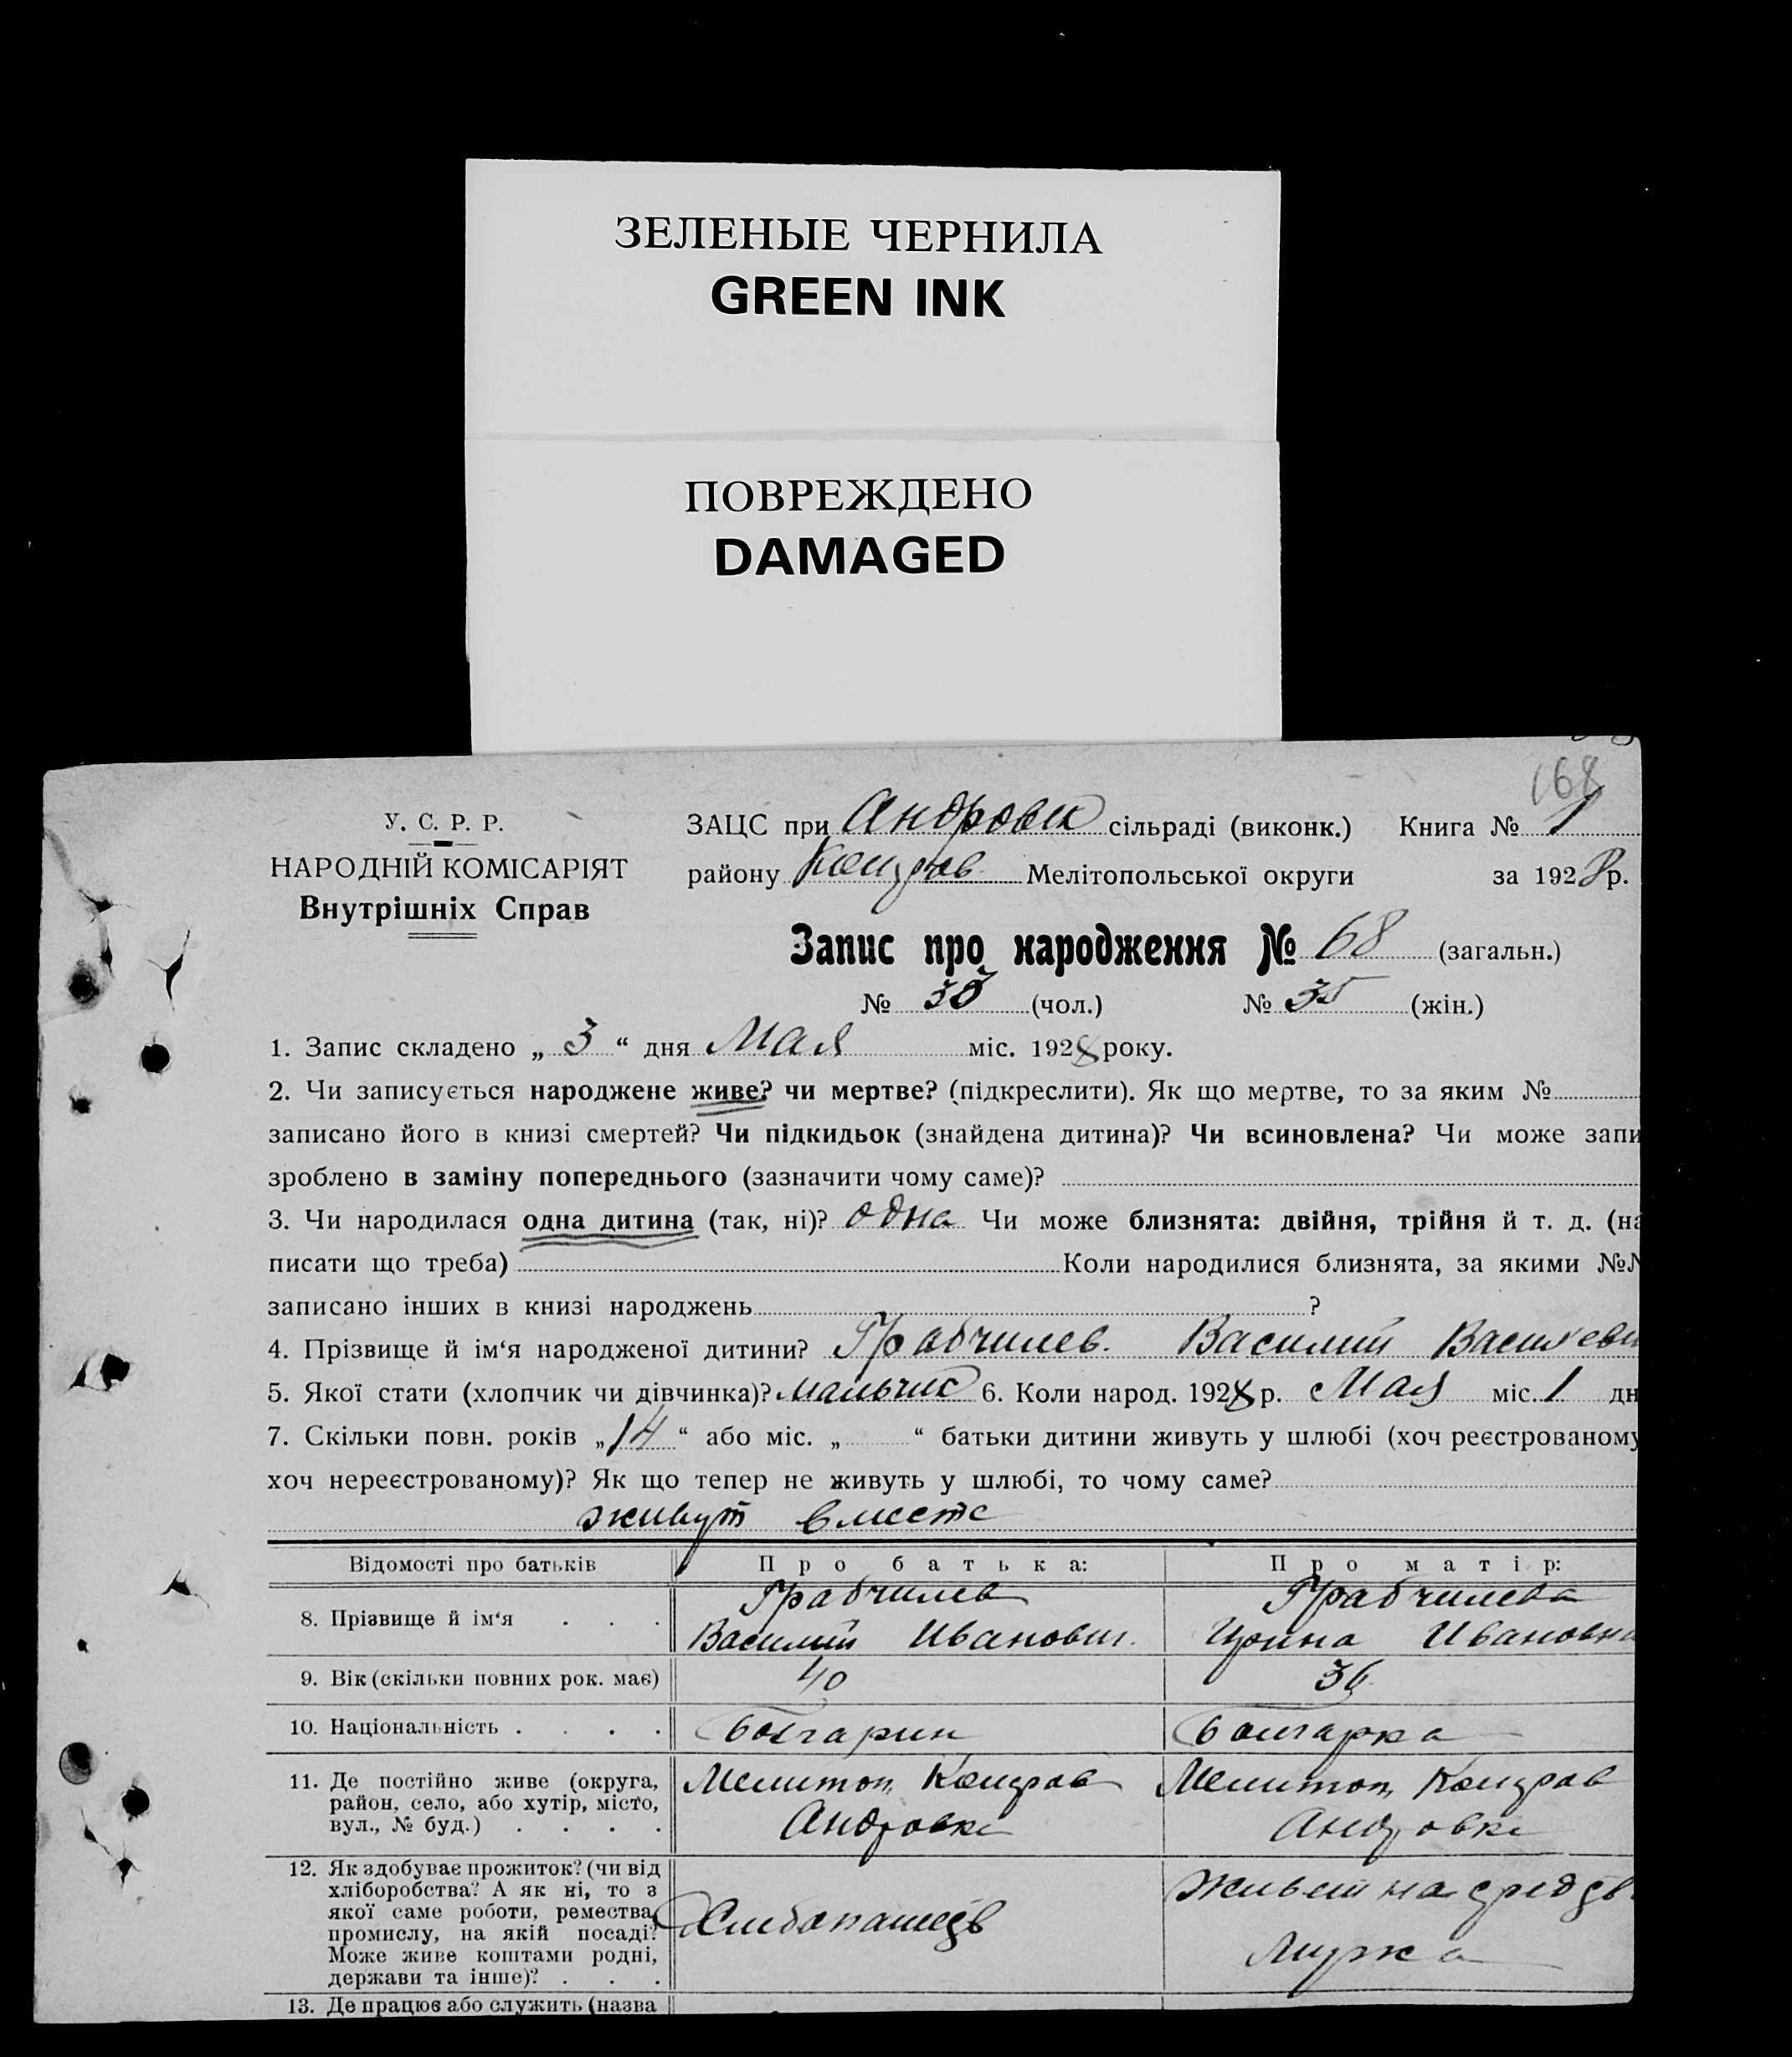 ЗЕЛЕНЫЕ ЧЕРНИЛА
GREEN INK
ПОВРЕЖДЕНО
DAMAGED
168
У. С. Р. Р.
НАРОДНІЙ КОМІСАРІЯТ
Внутрішніх Справ
ЗАЦС при Андровск сільраді (виконк.) Книга № 1
району Коларов Мелітопольської округи за 1928 р.
Запис про народження № 68 (загальн.)
№ 33 (чол.) № 35 (жін.)
1. Запис складено „ 3 “ дня Мая міс. 1928 року.
2. Чи записується народжене живе? чи мертве? (підкреслити). Як що мертве, то за яким №
записано його в книзі смертей? Чи підкидьок (знайдена дитина)? Чи всиновлена? Чи може запи
зроблено в заміну попереднього (зазначити чому саме)?
3. Чи народилася одна дитина (так, ні)? одна Чи може близнята: двійня, трійня й т. д. (на
писати що треба) Коли народилися близнята, за якими №№
записано інших в книзі народжень ?
4. Прізвище й ім‘я народженої дитини? Грабчилев. Василий Василеви
5. Якої стати (хлопчик чи дівчинка)? мальчик 6. Коли народ. 1928 р. Мая міс. 1 дн
7. Скільки повн. років „ 14 “ або міс. „ “ батьки дитини живуть у шлюбі (хоч реєстрованому
хоч нереєстрованому)? Як що тепер не живуть у шлюбі, то чому саме?
живут вместе
Відомості про батьків Про батька: Про матір:
8. Прізвище й ім‘я . . . Грабчилев Василий Иванович. Грабчилева Ирина Ивановна
9. Вік (скільки повних рок. має) 40 36
10. Національність . . . . болгарин болгарка
11. Де постійно живе (округа,
район, село, або хутір, місто,
вул., № буд.) . . . .
Мелитоп, Коларов
Андровка
Мелитоп, Коларов
Андровка
12. Як здобуває прожиток? (чи від
хліборобства? А як ні, то з
якої саме роботи, ремества,
промислу, на якій посаді?
Може живе коштами родні,
держави та інше)? . . .
Хлибопашедв
Живет на средств
Мужа
13. Де працює або служить (назва